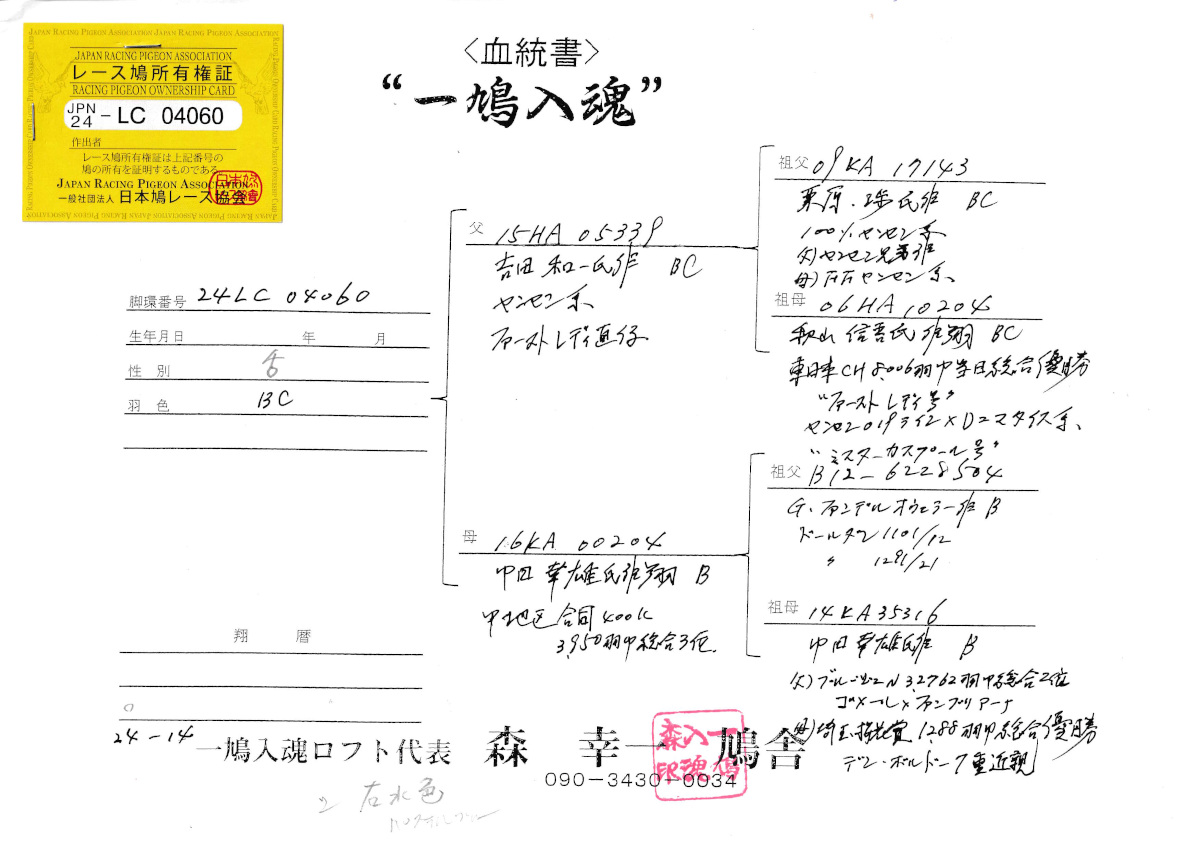 JAPAN RACING PIGEON ASSOCIATION
レース鳩所有権証
RACING PIGEON OWNERSHIP CARD
JPN 24 - LC 04060
作出者
レース鳩所有権証は上記番号の
鳩の所有を証明するものである
JAPAN RACING PIGEON ASSOCIATION
一般社団法人 日本鳩レース協会
〈血統書〉
“一鳩入魂”
脚環番号 24LC 04060
生年月日 年 月
性別
羽色 BC
翔暦
24-14
父 15HA 05339
吉田 和一氏作 BC
ヤンセン系
ファーストレディ直仔
母 16KA 00204
中田 幸雄氏作翔 B
中地区合同400K
3,950羽中総合3位
祖父 09KA 17143
栗原 氏作 BC
100%ヤンセン系
父)ヤンセン兄弟作
母)
ヤンセン系
祖母 06HA 10204
秋山 信吾氏作翔 BC
東日本CH 8,006羽中当日総合優勝
“ファーストレディ号”
ヤンセン019ライン×D=マタイス系
“ミスターカスプール号”
祖父 B12-6228504
G・ファンデルオウェラー作 B
ドールダン 1101/12
〃 1281/21
祖母 14KA35316
中田 幸雄氏作 B
父)ブルージュN 3,2762羽中総合2位
ゴメール×ファンブリアーナ
母)埼玉 1,288羽中総合優勝
デン・ボルドー7重近親
一鳩入魂ロフト代表 森 幸一 鳩舎
090-3430-0034
右水色